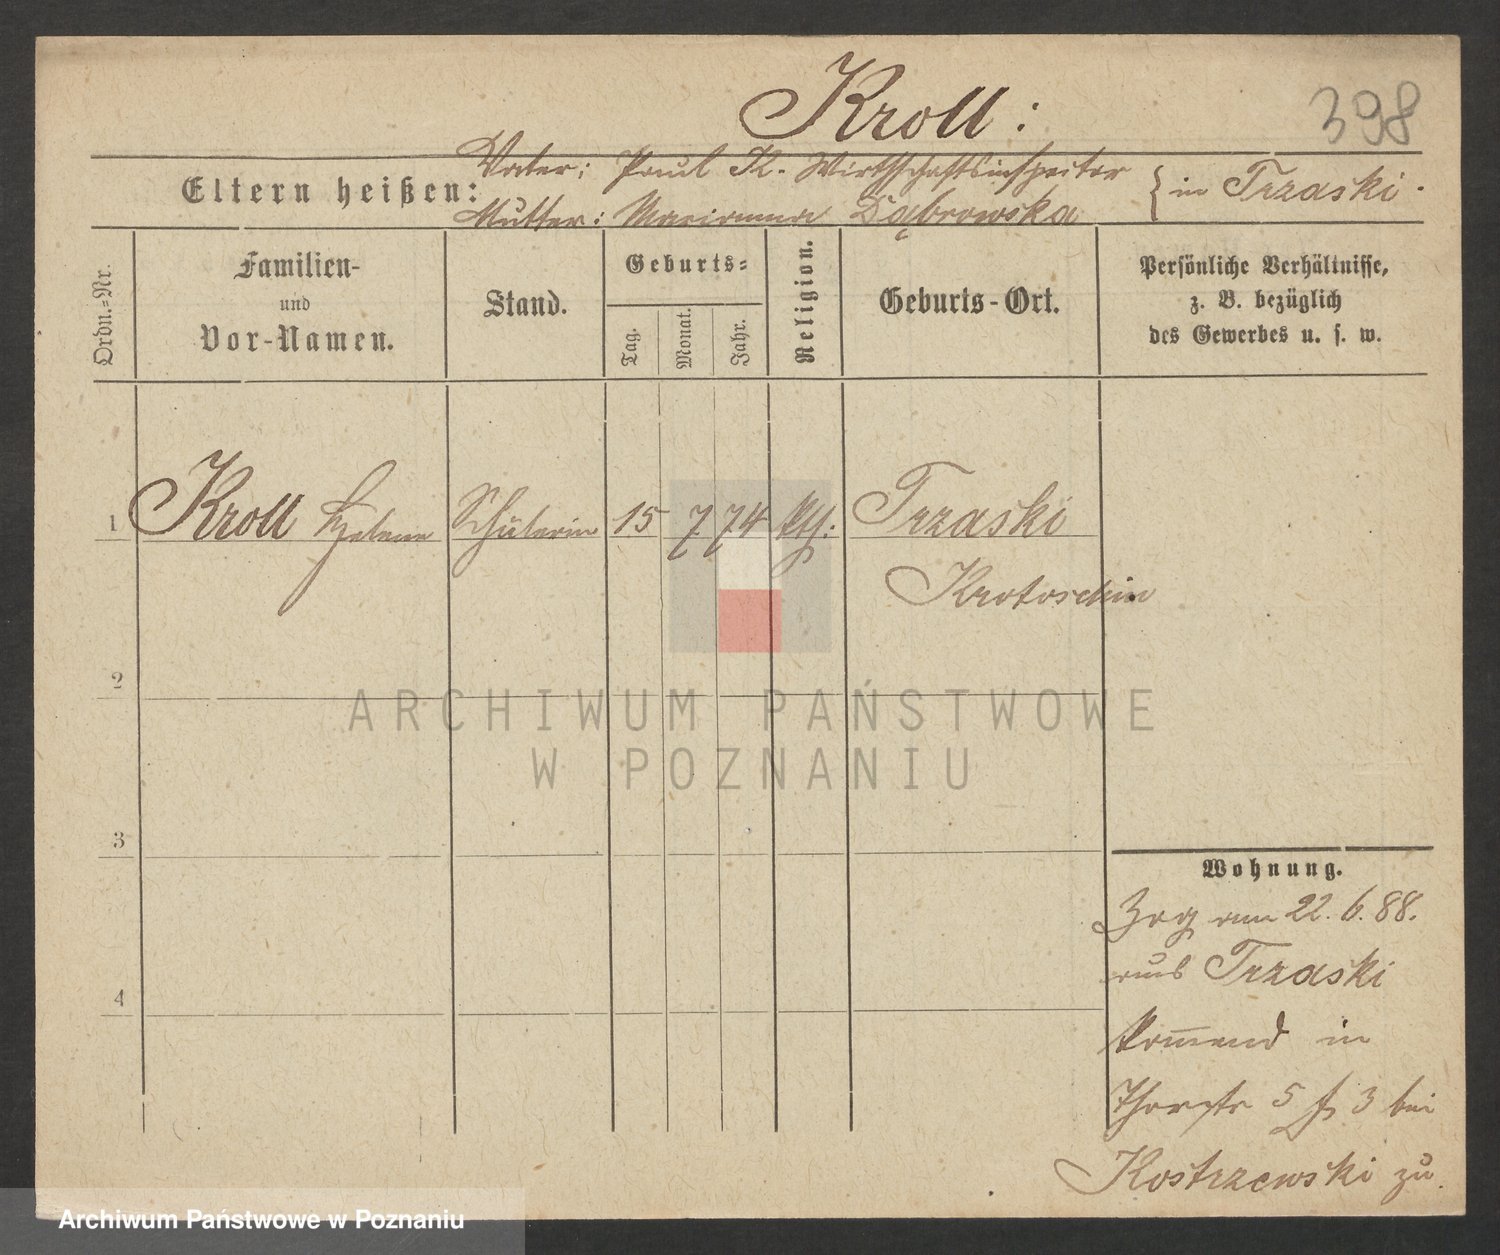 Kroll:
398
Vater: Paul K. Wirthschaftsinspector
Eltern heißen:
Mutter: Marianna Dąbrowska
} in Trzaski.
Ordn.=Nr.
Familien-
und
Vor-Namen.
Stand.
Geburts=
Tag.
Monat.
Jahr.
Religion.
Geburts-Ort.
Persönliche Verhältnisse,
z. B. bezüglich
des Gewerbes u. s. w.
1 Kroll Helene Schülerin 15 7 74 kth: Trzaski
Krotoschin
2
ARCHIWUM PAŃSTWOWE
W POZNANIU
3
4
Wohnung.
Zog am 22.6.88.
aus Trzaski
kom̅end in
Thorstr 5 3 bei
Kostrzewski zu.
Archiwum Państwowe w Poznaniu